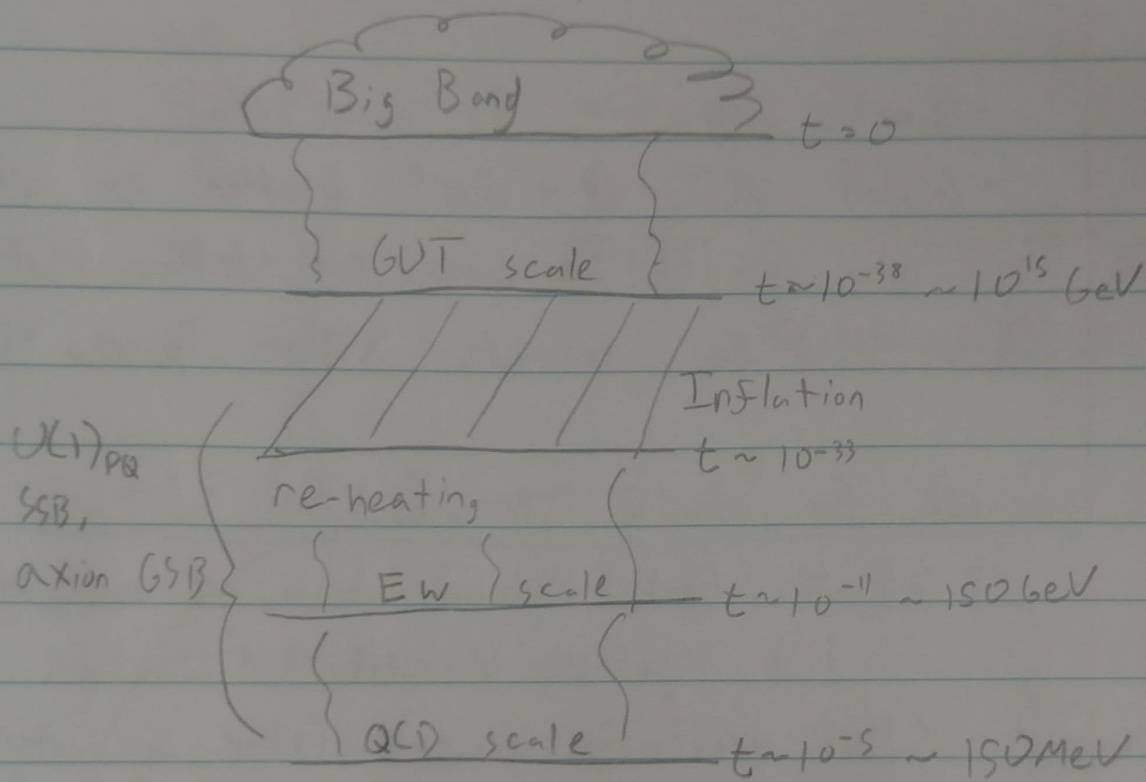 Big Bang
t = 0
GUT scale
t ~ 10⁻³⁸ ~ 10¹⁵ GeV
Inflation
t ~ 10⁻³³
U(1)PQ
SSB,
axion GSB
re-heating
EW scale
t ~ 10⁻¹¹ ~ 150 GeV
QCD scale
t ~ 10⁻⁵ ~ 150 MeV